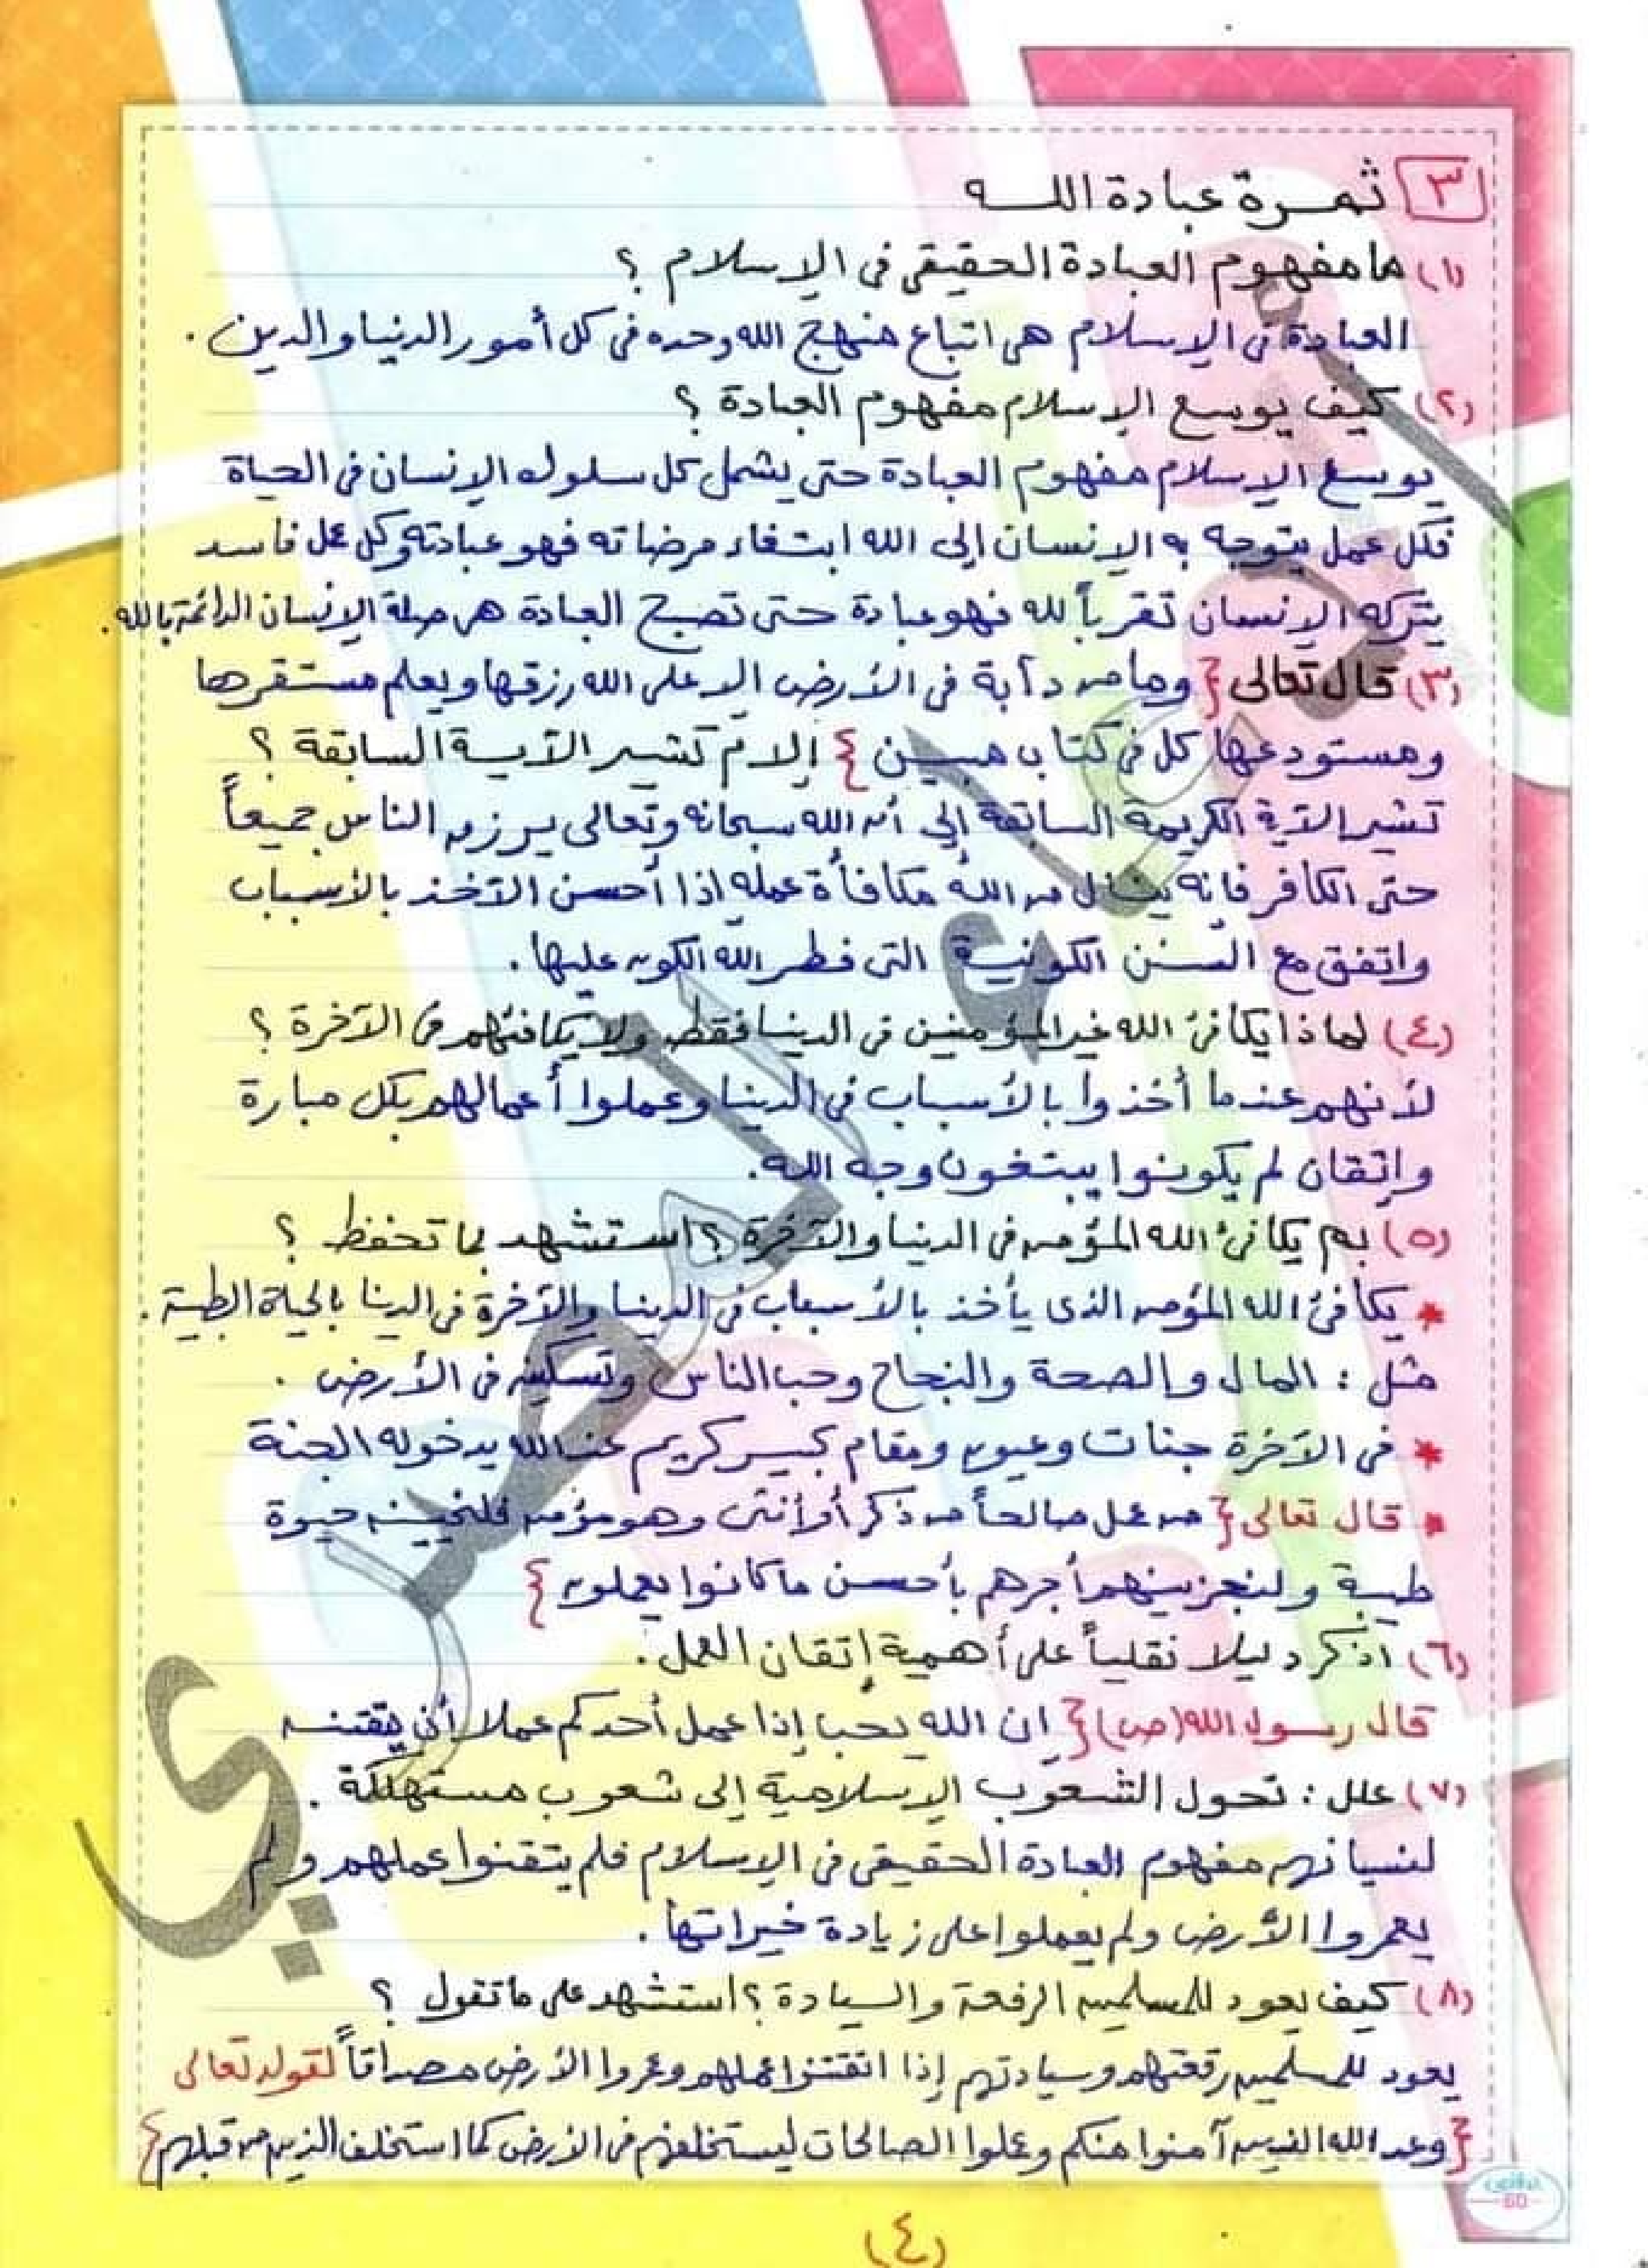 ٣ ثمرة عبادة الله
(١) ما مفهوم العبادة الحقيقى فى الإسلام ؟
العبادة فى الإسلام هى اتباع منهج الله وحده فى كل أمور الدنيا والدين .
(٢) كيف يوسع الإسلام مفهوم العبادة ؟
يوسع الإسلام مفهوم العبادة حتى يشمل كل سلوك الإنسان فى الحياة
فكل عمل يتوجه به الإنسان إلى الله ابتغاء مرضاته فهو عبادة وكل عمل فاسد
يتركه الإنسان تقرباً لله فهو عبادة حتى تصبح العبادة هى صلة الإنسان الدائمة بالله.
(٣) قال تعالى { وما من دآبة فى الأرض إلا على الله رزقها ويعلم مستقرها
ومستودعها كل فى كتاب مبين } إلام تشير الآية السابقة ؟
تشير الآية الكريمة السابقة إلى أن الله سبحانه وتعالى يرزق الناس جميعاً
حتى الكافر فإنه ينال من الله مكافأة عمله إذا أحسن الآخذ بالأسباب
واتفق مع السنن الكونية التى فطر الله الكون عليها .
(٤) لماذا يكافئ الله غير المؤمنين فى الدنيا فقط ولا يكافئهم فى الآخرة ؟
لأنهم عندما أخذوا بالأسباب فى الدنيا وعملوا أعمالهم بكل مبارة
وإتقان لم يكونوا يبتغون وجه الله.
(٥) بم يكافئ الله المؤمن فى الدنيا والآخرة ؟ استشهد بما تحفظ ؟
* يكافئ الله المؤمن الذى يأخذ بالأسباب فى الدنيا والآخرة فى الدنيا بالحياة الطيبة .
مثل : المال والصحة والنجاح وحب الناس وتمكينه فى الأرض .
* فى الآخرة جنات وعيون ومقام كبير كريم عند الله يدخوله الجنة
* قال تعالى { من عمل صالحاً من ذكر أو أنثى وهو مؤمن فلنحيينه حيوة
طيبة ولنجزينهم أجرهم بأحسن ما كانوا يعملون }
(٦) اذكر دليلا نقلياً على أهمية إتقان العمل .
قال رسول الله (ص) { إن الله يحب إذا عمل أحدكم عملا أن يتقنه
(٧) علل : تحول الشعوب الإسلامية إلى شعوب مستهلكة .
لنسيانهم مفهوم العبادة الحقيقى فى الإسلام فلم يتقنوا عملهم ولم
يعمروا الأرض ولم يعملوا على زيادة خيراتها .
(٨) كيف يعود للمسلمين الرفعة والسيادة ؟ استشهد على ما تقول ؟
يعود للمسلمين رفعتهم وسيادتهم إذا اتقنوا عملهم وعمروا الأرض مصداقاً لقوله تعالى
{ وعد الله الذين آمنوا منكم وعملوا الصالحات ليستخلفنهم فى الأرض كما استخلف الذين من قبلهم }
60
(٤)